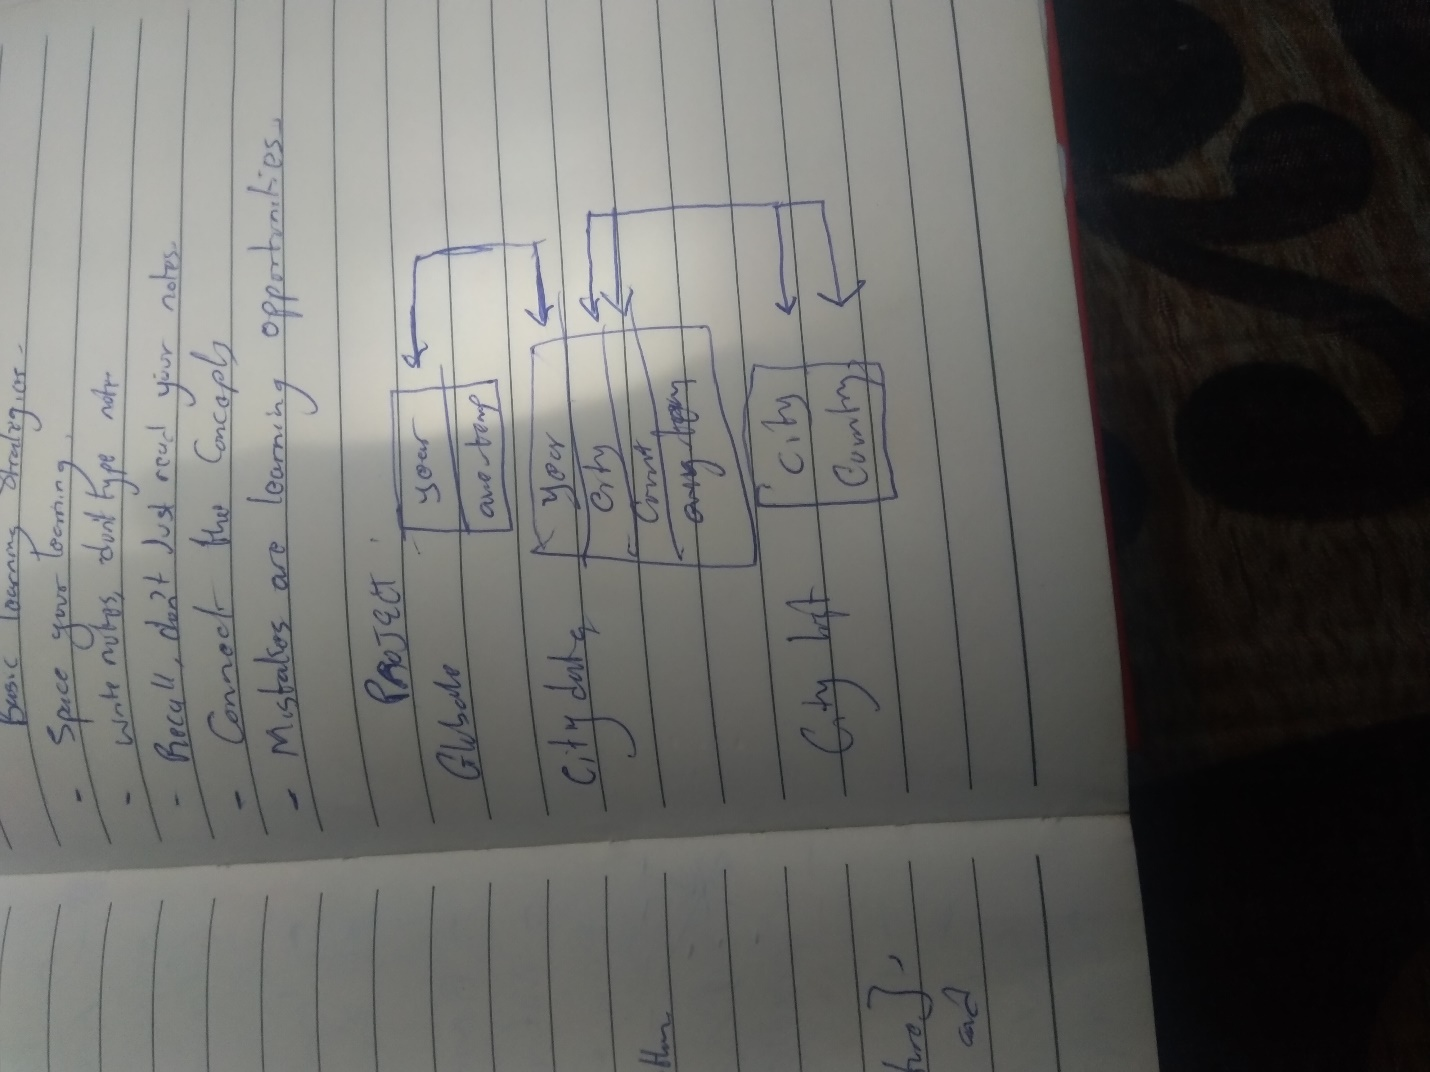 Basic learning strategies -
- Space your learning.
- write notes, don't type note
- Recall, don't Just read your notes.
- Connect the Concepts
- Mistakes are learning opportunities.
PROJECT:
Global
year
ave-temp
City data
year
City
Count
avg temp
City list
City
Country